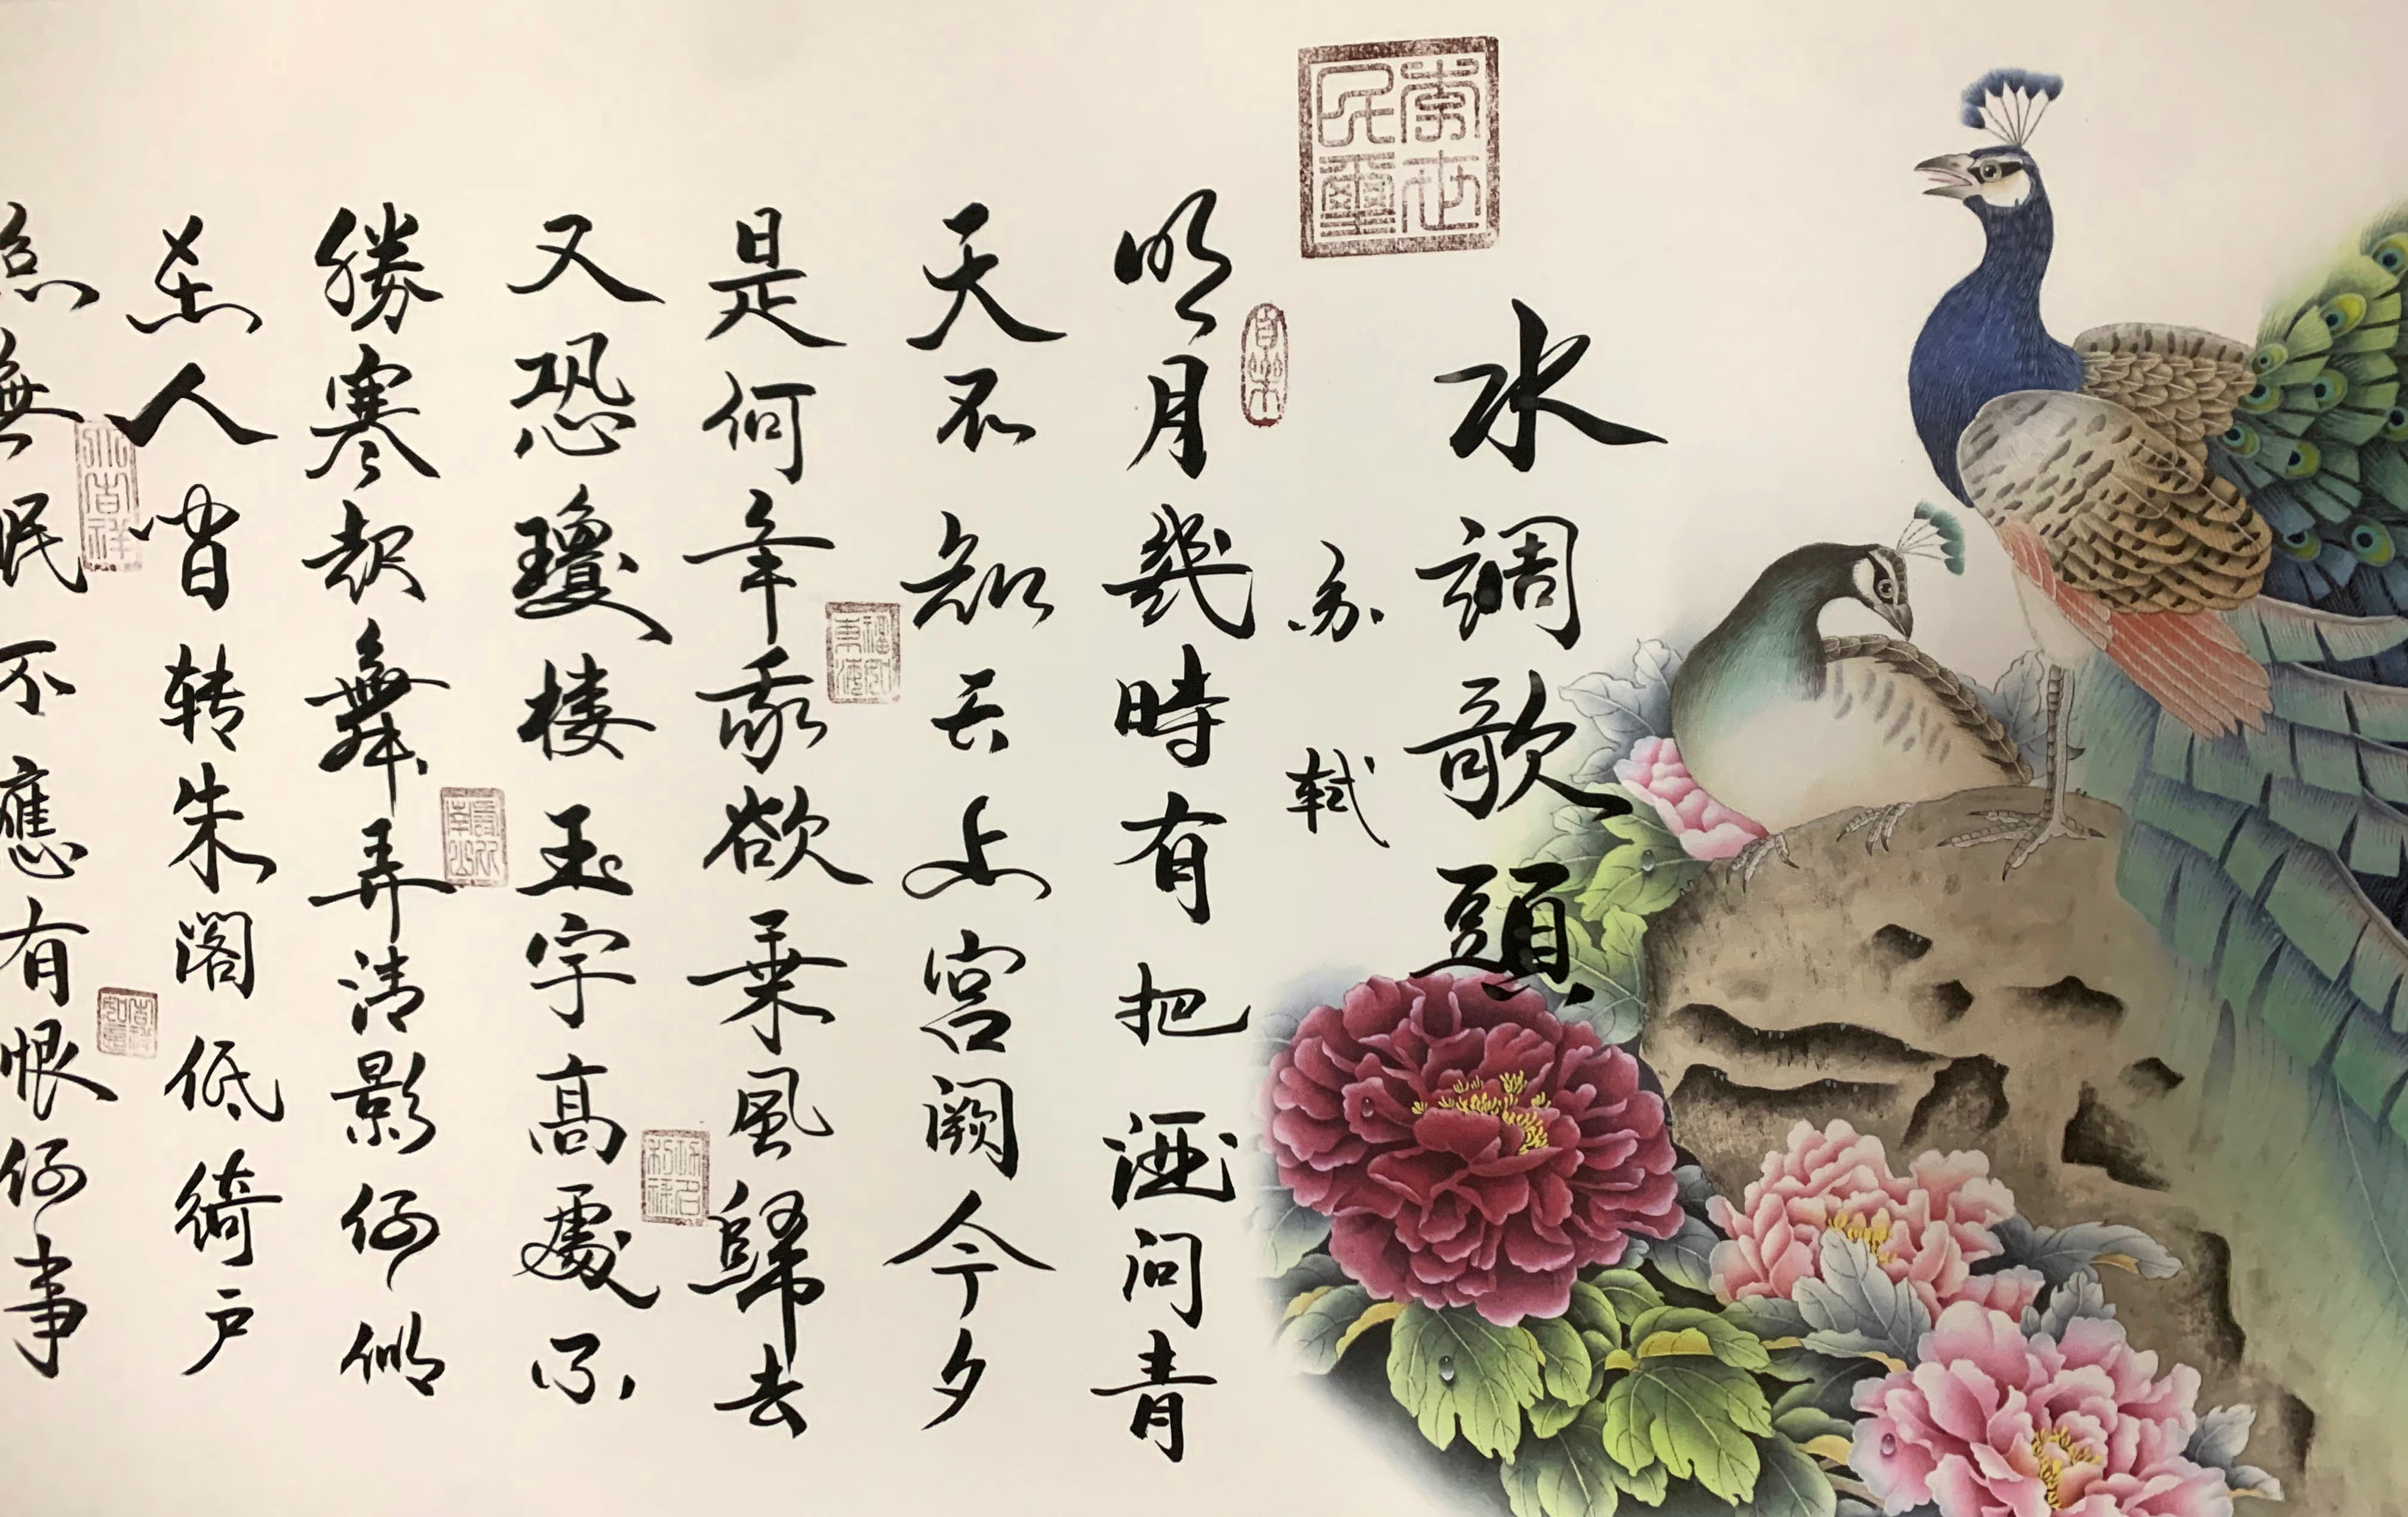 李世民璽
水調歌頭
苏轼
明月幾時有把酒问青
天不知天上宫阙今夕
是何年我欲乘風歸去
福如東海
又恐瓊楼玉宇高處不
勝寒起舞弄清影何似
在人间转朱阁低绮户
照無眠不應有恨何事